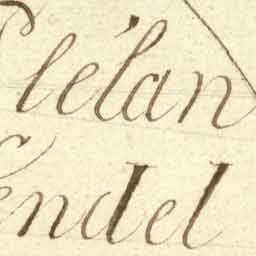 Plélan
endel